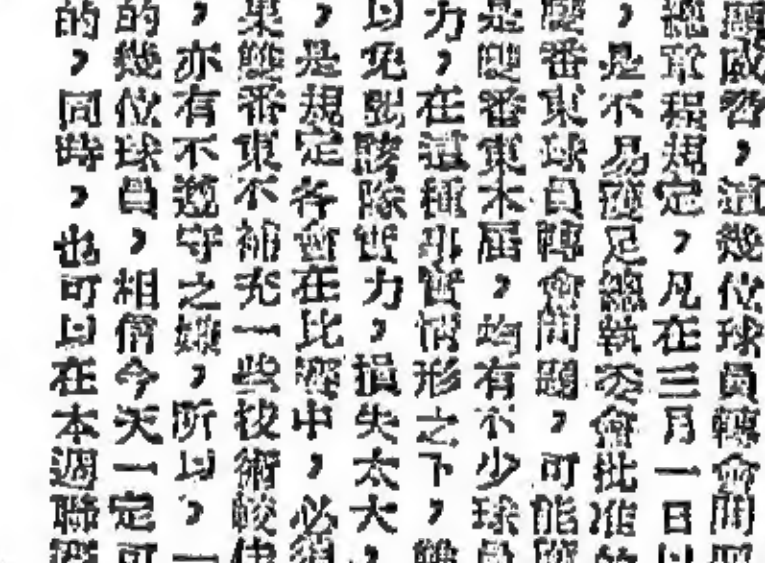 威否，這幾位球員轉會問
章程規定，凡在三月一日以
，是不易獲足總執委會批准
番東球員轉會問題，可能
是雙番東不屈，均有不少球員
力，在這種事實情形之下，雖
以免影響隊實力，損失太大，
，是規定各會在比賽中，必須
果雙番東不補充一些技術較佳
，亦有不遵守之嫌，所以，一
的幾位球員，相信今天一定可
的，同時，也可以在本週聯賽